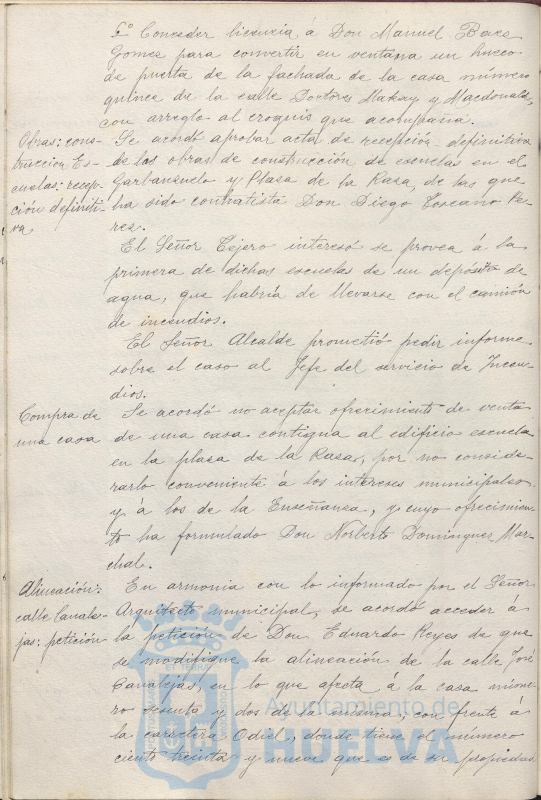 6º Conceder licencia á Don Manuel Baes
Gomes para convertir en ventana un hueco
de puerta de la fachada de la casa número
quince de la calle Doctores Makay y Macdonald,
con arreglo al croquis que acompaña.
Obras: cons-
truccion Es-
cuelas: recep-
ción definiti-
va
Se acordó aprobar acta de recepción definitiva
de las obras de construcción de escuelas en el
Garbansuelo y Plasa de la Rasa, de las que
ha sido contratista Don Diego Toscano Pe-
res.
El Señor Tejero interesó se provea á la
primera de dichas escuelas de un depósito de
agua, que habría de llevarse con el camión
de incendios.
El Señor Alcalde prometió pedir informe
sobre el caso al Jefe del servicio de Incen-
dios.
Compra de
una casa
Se acordó no aceptar ofrecimiento de venta
de una casa contigua al edificio escuela
en la plasa de la Rasa, por no conside-
rarlo conveniente á los intereses municipales
y á los de la Enseñansa, y cuyo ofrecimien-
to ha formulado Don Norberto Domingues Mar-
chal.
Alineación:
calle Canale-
jas: petición
En armonia con lo informado por el Señor
Arquitecto municipal, se acordó acceder á
la petición de Don Eduardo Reyes de que
se modifique la alineación de la calle José
Canalejas, en lo que afecta á la casa núme-
ro sesenta y dos de la misma, con frente á
la carretera Odiel, donde tiene el número
ciento treinta y nueve que es de su propiedad
Ayuntamiento de
HUELVA